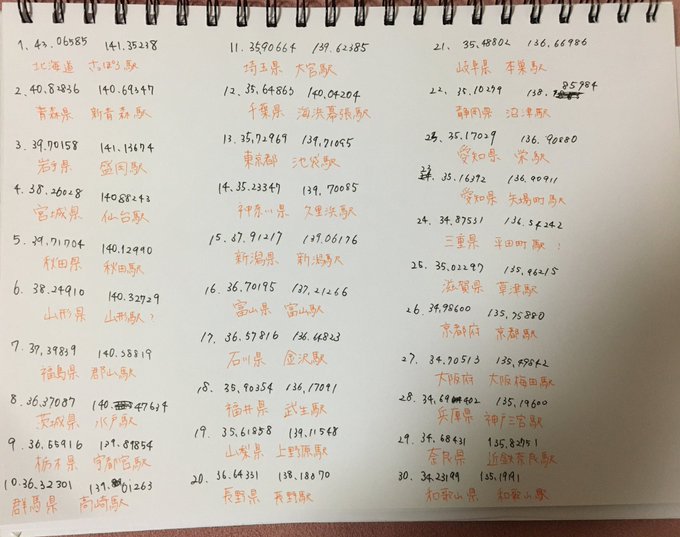 1. 43.06585 141.35238
北海道 さっぽろ駅
2. 40.82836 140.69347
青森県 新青森駅
3. 39.70158 141.13674
岩手県 盛岡駅
4. 38.26028 140.88243
宮城県 仙台駅
5. 39.71704 140.12990
秋田県 秋田駅
6. 38.24910 140.32729
山形県 山形駅?
7. 37.39839 140.38819
福島県 郡山駅
8. 36.37087 140.47634
茨城県 水戸駅
9. 36.55916 139.89854
栃木県 宇都宮駅
10. 36.32301 139.01263
群馬県 高崎駅
11. 35.90664 139.62385
埼玉県 大宮駅
12. 35.64863 140.04204
千葉県 海浜幕張駅
13. 35.72969 139.71095
東京都 池袋駅
14. 35.23347 139.70085
神奈川県 久里浜駅
15. 37.91217 139.06176
新潟県 新潟駅
16. 36.70195 137.21266
富山県 富山駅
17. 36.57816 136.64823
石川県 金沢駅
18. 35.90354 136.17091
福井県 武生駅
19. 35.61858 139.11548
山梨県 上野原駅
20. 36.64331 138.18870
長野県 長野駅
21. 35.48802 136.66986
岐阜県 本巣駅
22. 35.10279 138.85984
静岡県 沼津駅
23. 35.17029 136.90880
愛知県 栄駅
23 35.16392 136.90911
愛知県 矢場町駅
24. 34.87531 136.54242
三重県 平田町駅?
25. 35.02297 135.96215
滋賀県 草津駅
26. 34.98600 135.75880
京都府 京都駅
27. 34.70513 135.49842
大阪府 大阪梅田駅
28. 34.69402 135.19600
兵庫県 神戸三宮駅
29. 34.68431 135.82751
奈良県 近鉄奈良駅
30. 34.23199 135.19191
和歌山県 和歌山駅